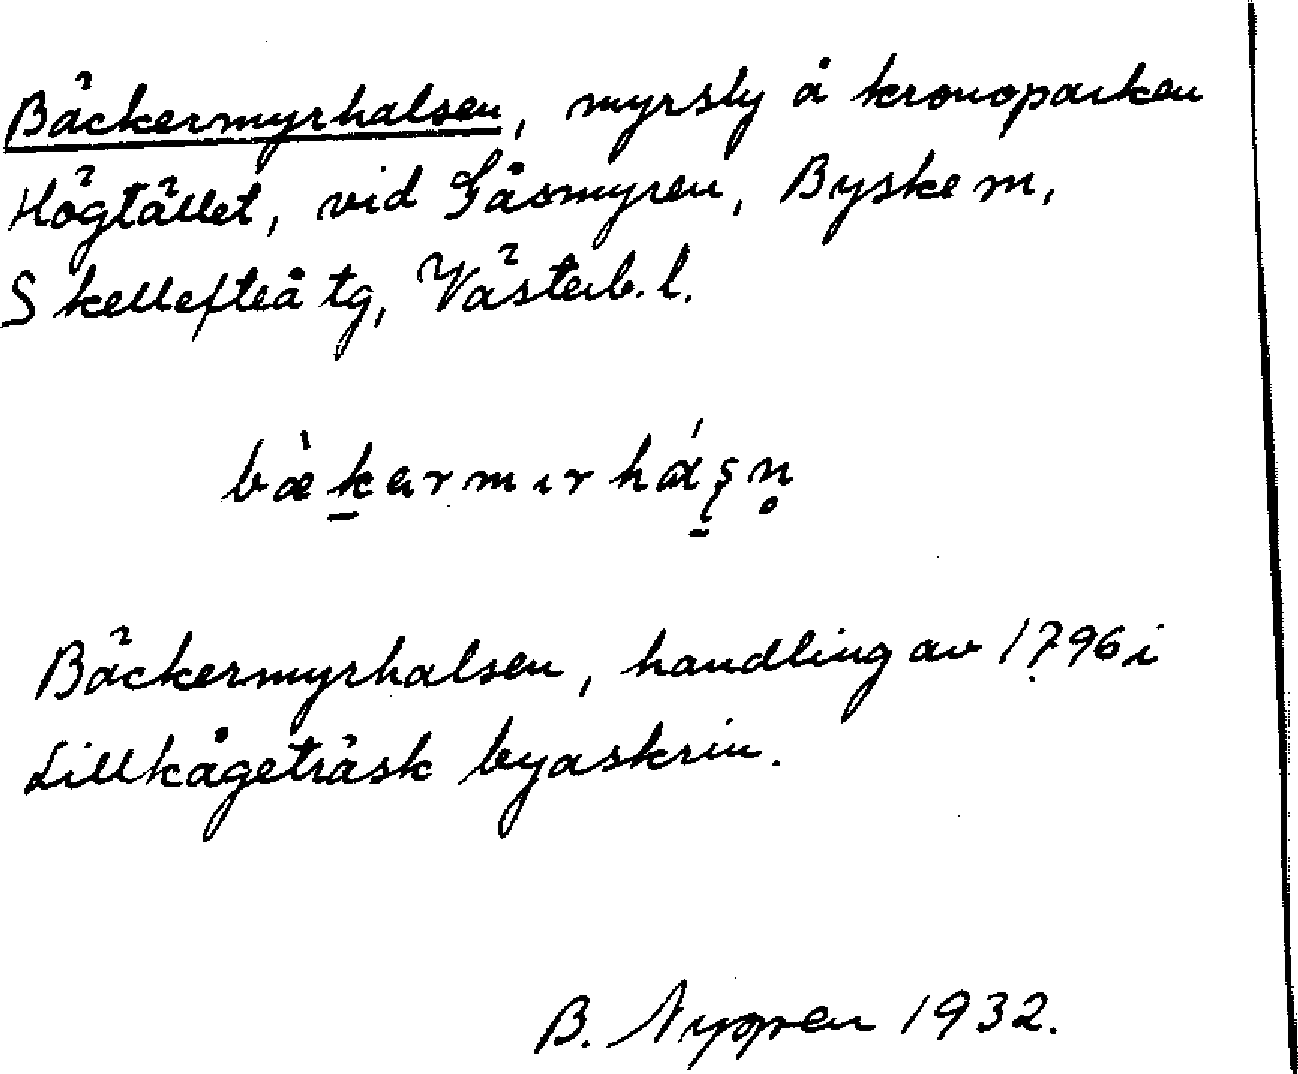 Bäckermyrhalsen, myrsly å kronoparken
Högtället, vid Gåsmyren, Byske m,
Skellefteå tg, Västerb. l.
Bäckermyrhalsen, handling av 1796 i
Lillkågeträsk byaskrin.
B. Nygren 1932.